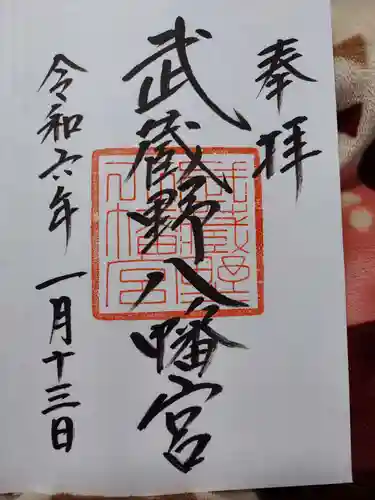 奉拝
武蔵野八幡宮
令和六年一月十三日
武蔵野
八幡宮